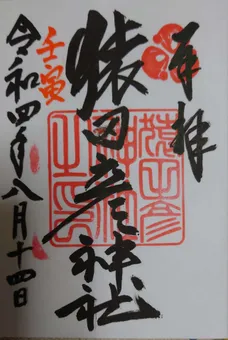 奉拝
猿田彦神社
壬寅
令和四年八月十四日